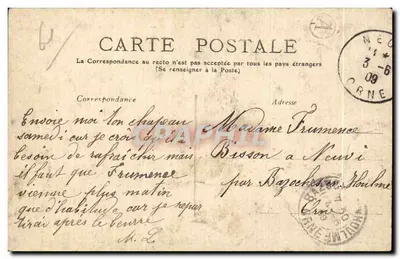 CARTE POSTALE
La Correspondance au recto n'est pas acceptée par tous les pays étrangers
(Se renseigner à la Poste)
Correspondance
Adresse
Envoie moi ton chapeau
samedi car je crois qu'il a
besoin de rafraichir mais
il faut que Frumence
vienne plus matin
que d'habitude car je repar
tirai après le beurre
M. L.
Madame Frumence
Bisson a Neuvi
par Bazoches Houlme
Orne
A
3 -6
09
ORNE